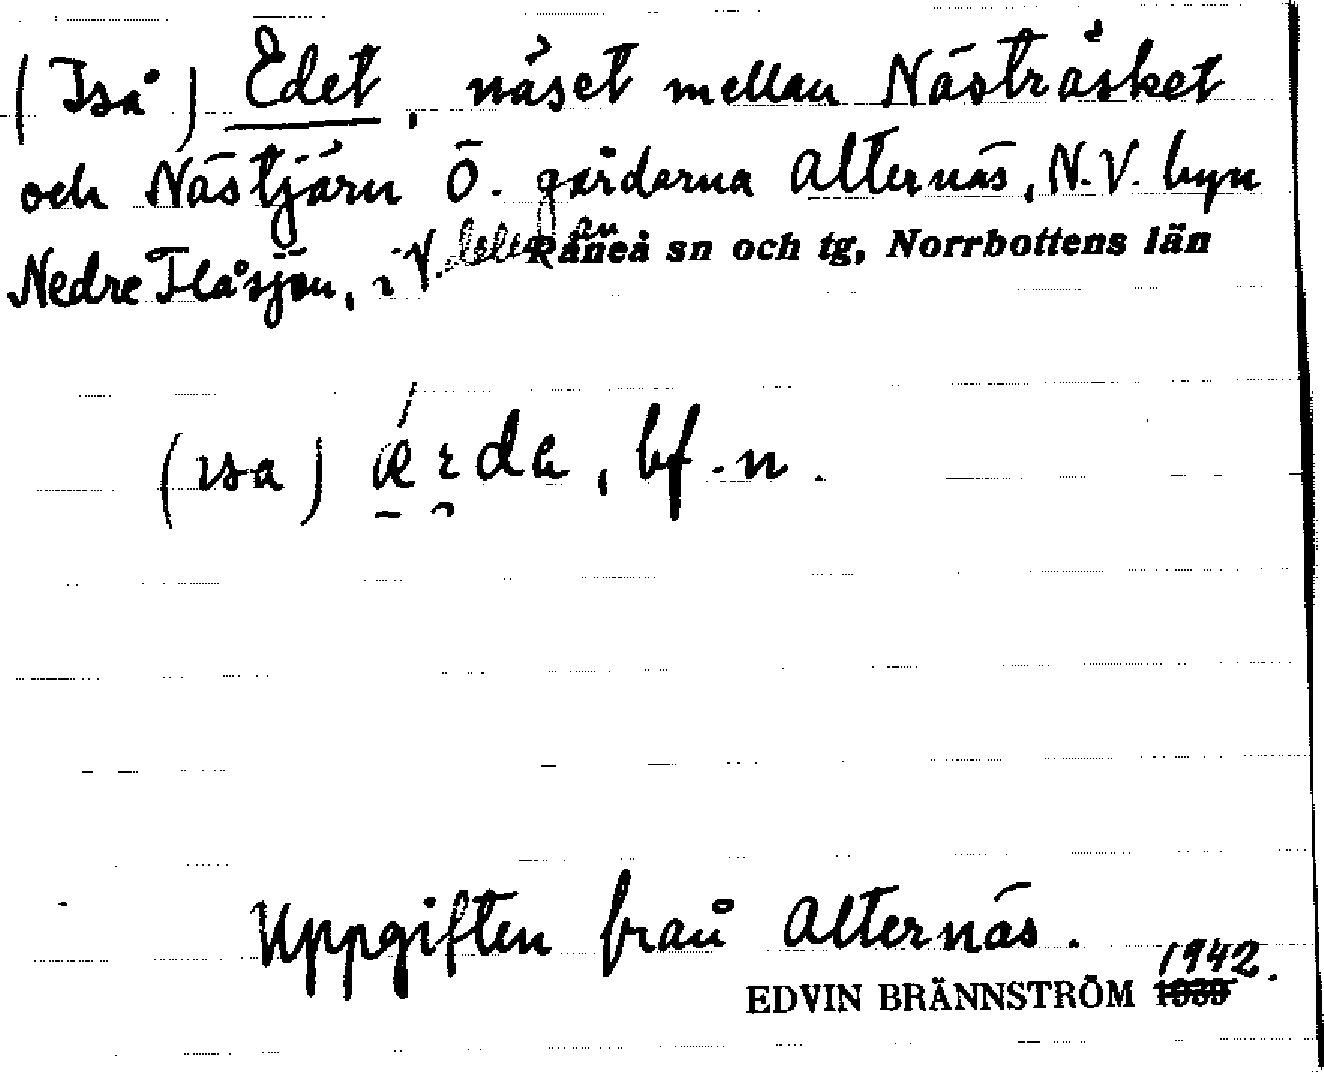 (Iså) Edet, näset mellan Nästräsket
och Nästjärn Ö. gårderna Alternäs, N.V. byn
Nedre Flåsjön, i V. delen av
Råneå sn och tg, Norrbottens län
(ısa) ærda, bf. n.
Uppgiften från Alternäs.
1942.
EDVIN BRÄNNSTRÖM 1939